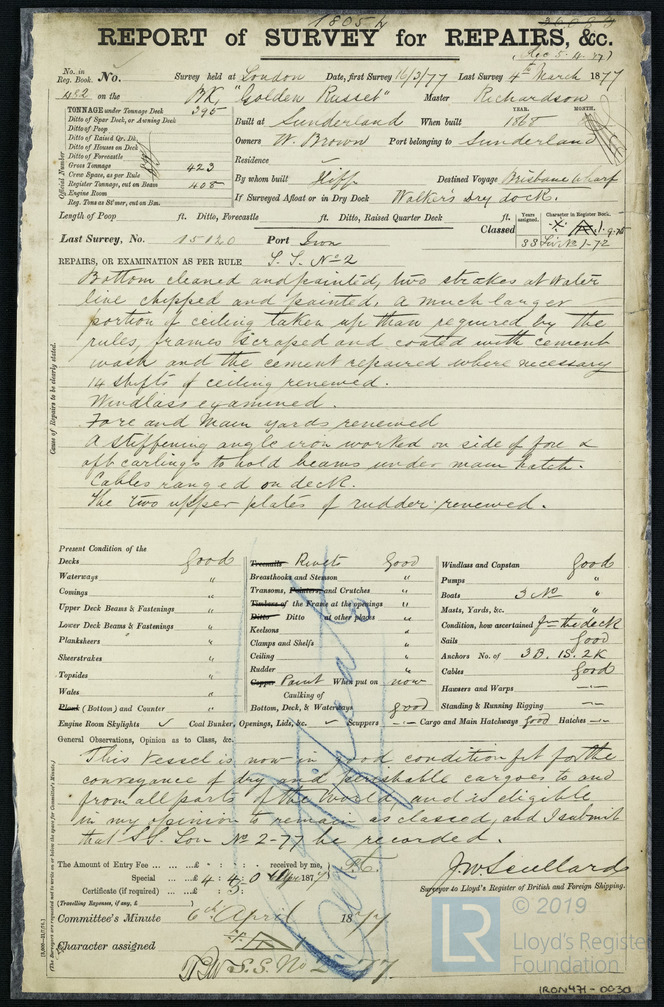 1805 N
REPORT of SURVEY for REPAIRS, &c.
(Rec 5.4.77)
No. in Reg. Book. No. Survey held at London Date, first Survey 16/3/77 Last Survey 4th March 1877
482 on the BK, "Golden Russet" Master Richardson
TONNAGE under Tonnage Deck 395
Ditto of Spar Deck, or Awning Deck
Ditto of Poop
Ditto of Raised Qr. Dk
Ditto of Houses on Deck
Ditto of Forecastle
Gross Tonnage 423
Crew Space, as per Rule
Register Tonnage, cut on Beam 408
Engine Room
Reg. Tons as St'mer, cut on Bm.
Official Number
YEAR. MONTH.
Built at Sunderland When built 1868
Owners W. Brown Port belonging to Sunderland
Residence
By whom built Iliff Destined Voyage Brisbane Wharf
If Surveyed Afloat or in Dry Dock Walker's Dry dock.
Length of Poop ft. Ditto, Forecastle ft. Ditto, Raised Quarter Deck ft.
Classed
Years assigned. Character in Register Book.
A 1. 9.75
SS No 1-72
Last Survey, No. 15120 Port Iron
REPAIRS, OR EXAMINATION AS PER RULE S. S. No 2
Cause of Repairs to be clearly stated.
Bottom cleaned and painted, two strakes at Water
line chipped and painted. A much larger
portion of ceiling taken up than required by the
rules, frames scraped and coated with cement
wash and the cement repaired where necessary
14 shifts of ceiling renewed.
Windlass examined.
Fore and Main yards renewed
A stiffening angle iron worked on side of fore &
aft carlings to hold beams under main hatch.
Cables ranged on deck.
The two upper plates of rudder renewed.
Present Condition of the
Decks Good
Waterways "
Comings "
Upper Deck Beams & Fastenings "
Lower Deck Beams & Fastenings "
Planksheers "
Sheerstrakes "
Topsides "
Wales "
Plank (Bottom) and Counter "
Treenails Rivets Good
Breasthooks and Stemson "
Transoms, Pointers, and Crutches "
Timbers of the Frame at the openings "
Ditto Ditto at other places "
Keelsons "
Clamps and Shelfs "
Ceiling "
Rudder "
Copper Paint When put on now
Caulking of
Bottom, Deck, & Waterways good
Windlass and Capstan Good
Pumps "
Boats 3 No "
Masts, Yards, &c. "
Condition, how ascertained from the deck
Sails Good
Anchors No. of 3 B. 1S. 2K
Cables Good
Hawsers and Warps -"-
Standing & Running Rigging -"-
Engine Room Skylights ✓ Coal Bunker, Openings, Lids, &c. ✓ Scuppers -"- Cargo and Main Hatchways Good Hatches -"-
General Observations, Opinion as to Class, &c.
This Vessel is now in good condition fit for the
conveyance of dry and perishable cargoes to and
from all parts of the World, and is eligible
in my opinion to remain as classed, and I submit
that S.S. Lon No 2-77 be recorded.
The Amount of Entry Fee ... £ : : received by me,
Special ... £ 4 : 4 : 0 187
Certificate (if required) ... £ :
(Travelling Expenses, if any, £ )
J. W. Scullard
Surveyor to Lloyd's Register of British and Foreign Shipping.
Committee's Minute 6th April 1877
Character assigned
S.S. No 2-77
© 2019
LR
Lloyd's Register
Foundation
IRON471-0030